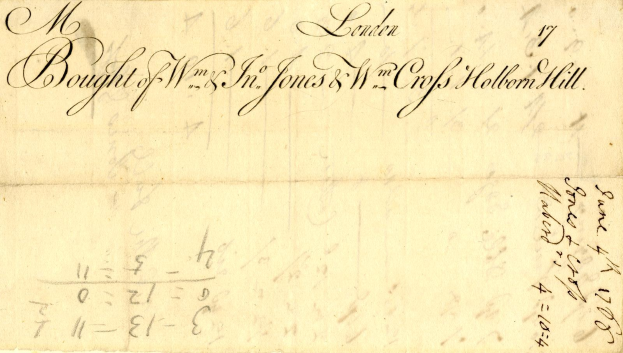 M London 17
Bought of Wm & Jno Jones & Wm Croſs Holborn Hill.
June 4th
Jones & Croſs
4=10=4
3 - 13 - 11
0 = 12 = 0
4 - 5 = 11